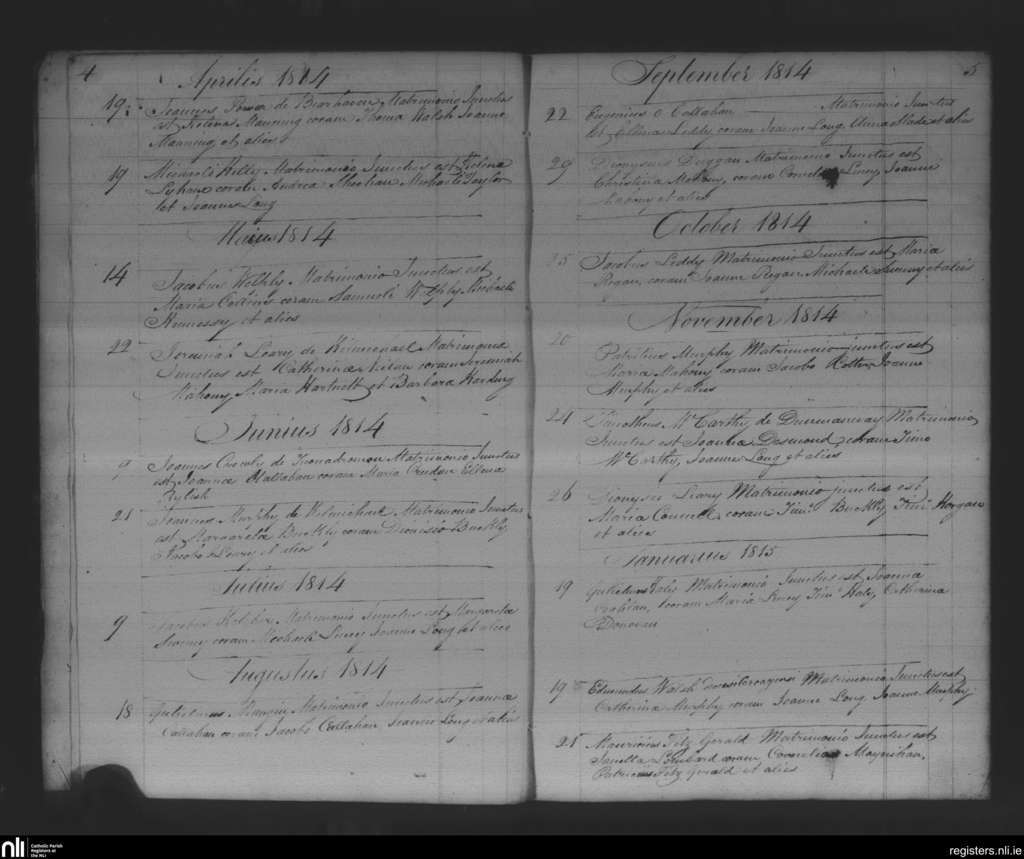 4
Aprilis 1814
19 Joannes Power de Bearhaven Matrimonio Junctus
est Helena Manning coram Thoma Walsh Joanne
Manning et aliis
19 Michael Kelly Matrimonio Junctus est Helena
coram Andrea Sheehan Michaele Taylor
et Joanne Long
Maius 1814
14 Jacobus Matrimonio Junctus est
Maria Collins coram Samuele Michaele
Hennessy et aliis
22 Leary de Matrimonio
Junctus est Catherina coram Jeremiah
Mahony Maria Hartnett et Barbara Harding
Junius 1814
9 Joannes de Matrimonio Junctus
est Joanna Callahan coram Maria Ellena
21 Joannes Murphy de Matrimonio Junctus
est Margareta Buckly coram Dionisio Buckly
Jacobo Leary et aliis
Julius 1814
9 Jacobus Matrimonio Junctus est Margareta
coram Michaele Lucey Joanne Long et aliis
Augustus 1814
18 Gulielmus Matrimonio Junctus est Joanna
Callahan coram Jacobo Callahan Joanne Long et aliis
5
September 1814
22 Eugenius O Callahan Matrimonio Junctus
est Leddy coram Joanne Long et aliis
29 Dionysius Duggan Matrimonio Junctus est
Christina coram Lucey Joanne
Mahony et aliis
October 1814
25 Jacobus Leddy Matrimonio Junctus est Maria
Regan, coram Joanne Regan Michaele et aliis
November 1814
20 Patritius Murphy Matrimonio junctus est
Maria Mahony coram Jacobo Joanne
Murphy et aliis
24 Timothius McCarthy de Dunmanway Matrimonio
Junctus est Joanna Desmond, coram Timo
McCarthy, Joanne Long et aliis
26 Dionysius Leary Matrimonio junctus est
Maria coram Timo Buckly Timo Horgan
et aliis
Januarius 1815
19 Gulielmus Matrimonio Junctus est Joanna
coram Maria Timo Catherina
Donovan
19 Edmundus Walsh Matrimonio Junctus est
Catherina Murphy coram Joanne Long Joanne Murphy
21 Mauritius Fitz Gerald Matrimonio Junctus est
Lombard coram Cornelio Moynihan,
Patricius Fitz Gerald et aliis
nli
Catholic Parish
Registers at
the NLI
registers.nli.ie